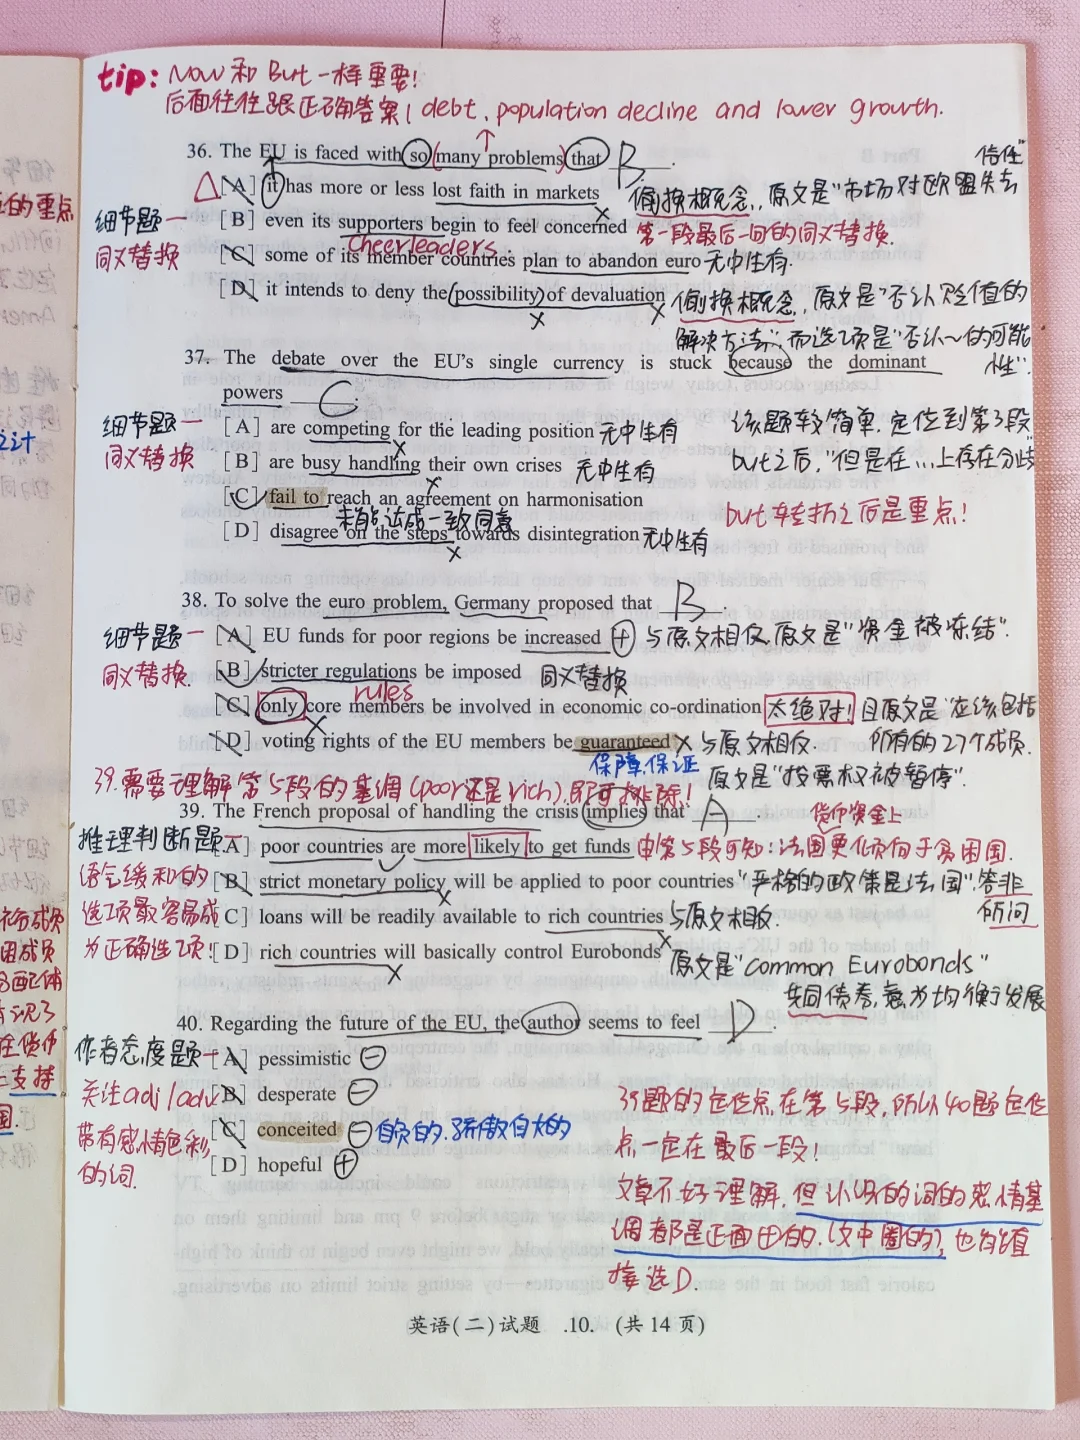 tip: Now 和 But 一样重要!
后面往往跟正确答案! debt、population decline and lower growth.
36. The EU is faced with so many problems that B.
[A] it has more or less lost faith in markets 偷换概念,原文是"市场对欧盟失去信任"
[B] even its supporters begin to feel concerned 第一段最后一句的同义替换.
细节题一
同义替换
cheerleaders.
[C] some of its member countries plan to abandon euro 无中生有.
[D] it intends to deny the possibility of devaluation 偷换概念,原文是"否认贬值的
解决方法",而选项是"否认~的可能性".
37. The debate over the EU's single currency is stuck because the dominant
powers C.
[A] are competing for the leading position 无中生有
细节题一
同义替换
该题较简单.定位到第3段
but之后,"但是在...上存在分歧"
[B] are busy handling their own crises 无中生有
[C] fail to reach an agreement on harmonisation
but转折之后是重点!
未能达成一致同意
[D] disagree on the steps towards disintegration 无中生有
38. To solve the euro problem, Germany proposed that B.
细节题一
同义替换.
[A] EU funds for poor regions be increased + 与原文相反,原文是"资金被冻结".
[B] stricter regulations be imposed 同义替换
rules
[C] only core members be involved in economic co-ordination 太绝对!且原文是"应该包括
所有的27个成员.
[D] voting rights of the EU members be guaranteed 与原文相反.
保障,保证
原文是"投票权被暂停".
39.需要理解第5段的基调(poor还是rich),即可排除!
39. The French proposal of handling the crisis implies that A.
货币资金上
推理判断题一
[A] poor countries are more likely to get funds 由第5段可知:法国更倾向于贫困国.
语气缓和的
选项最容易成
为正确选项!
[B] strict monetary policy will be applied to poor countries "严格的政策是法国".答非所问
[C] loans will be readily available to rich countries 与原文相反.
[D] rich countries will basically control Eurobonds 原文是"common Eurobonds"
共同债券,意为均衡发展
40. Regarding the future of the EU, the author seems to feel D.
作者态度题一
关注adj/adv
带有感情色彩
的词.
[A] pessimistic −
[B] desperate −
[C] conceited − 自负的.骄傲自大的
[D] hopeful +
39题的定位点在第5段,所以40题定位
点一定在最后一段!
文章不好理解.但认识的词的感情基
调都是正面+的.(文中圈的),也可直
接选D.
英语(二)试题 .10. (共14页)
的重点
支持